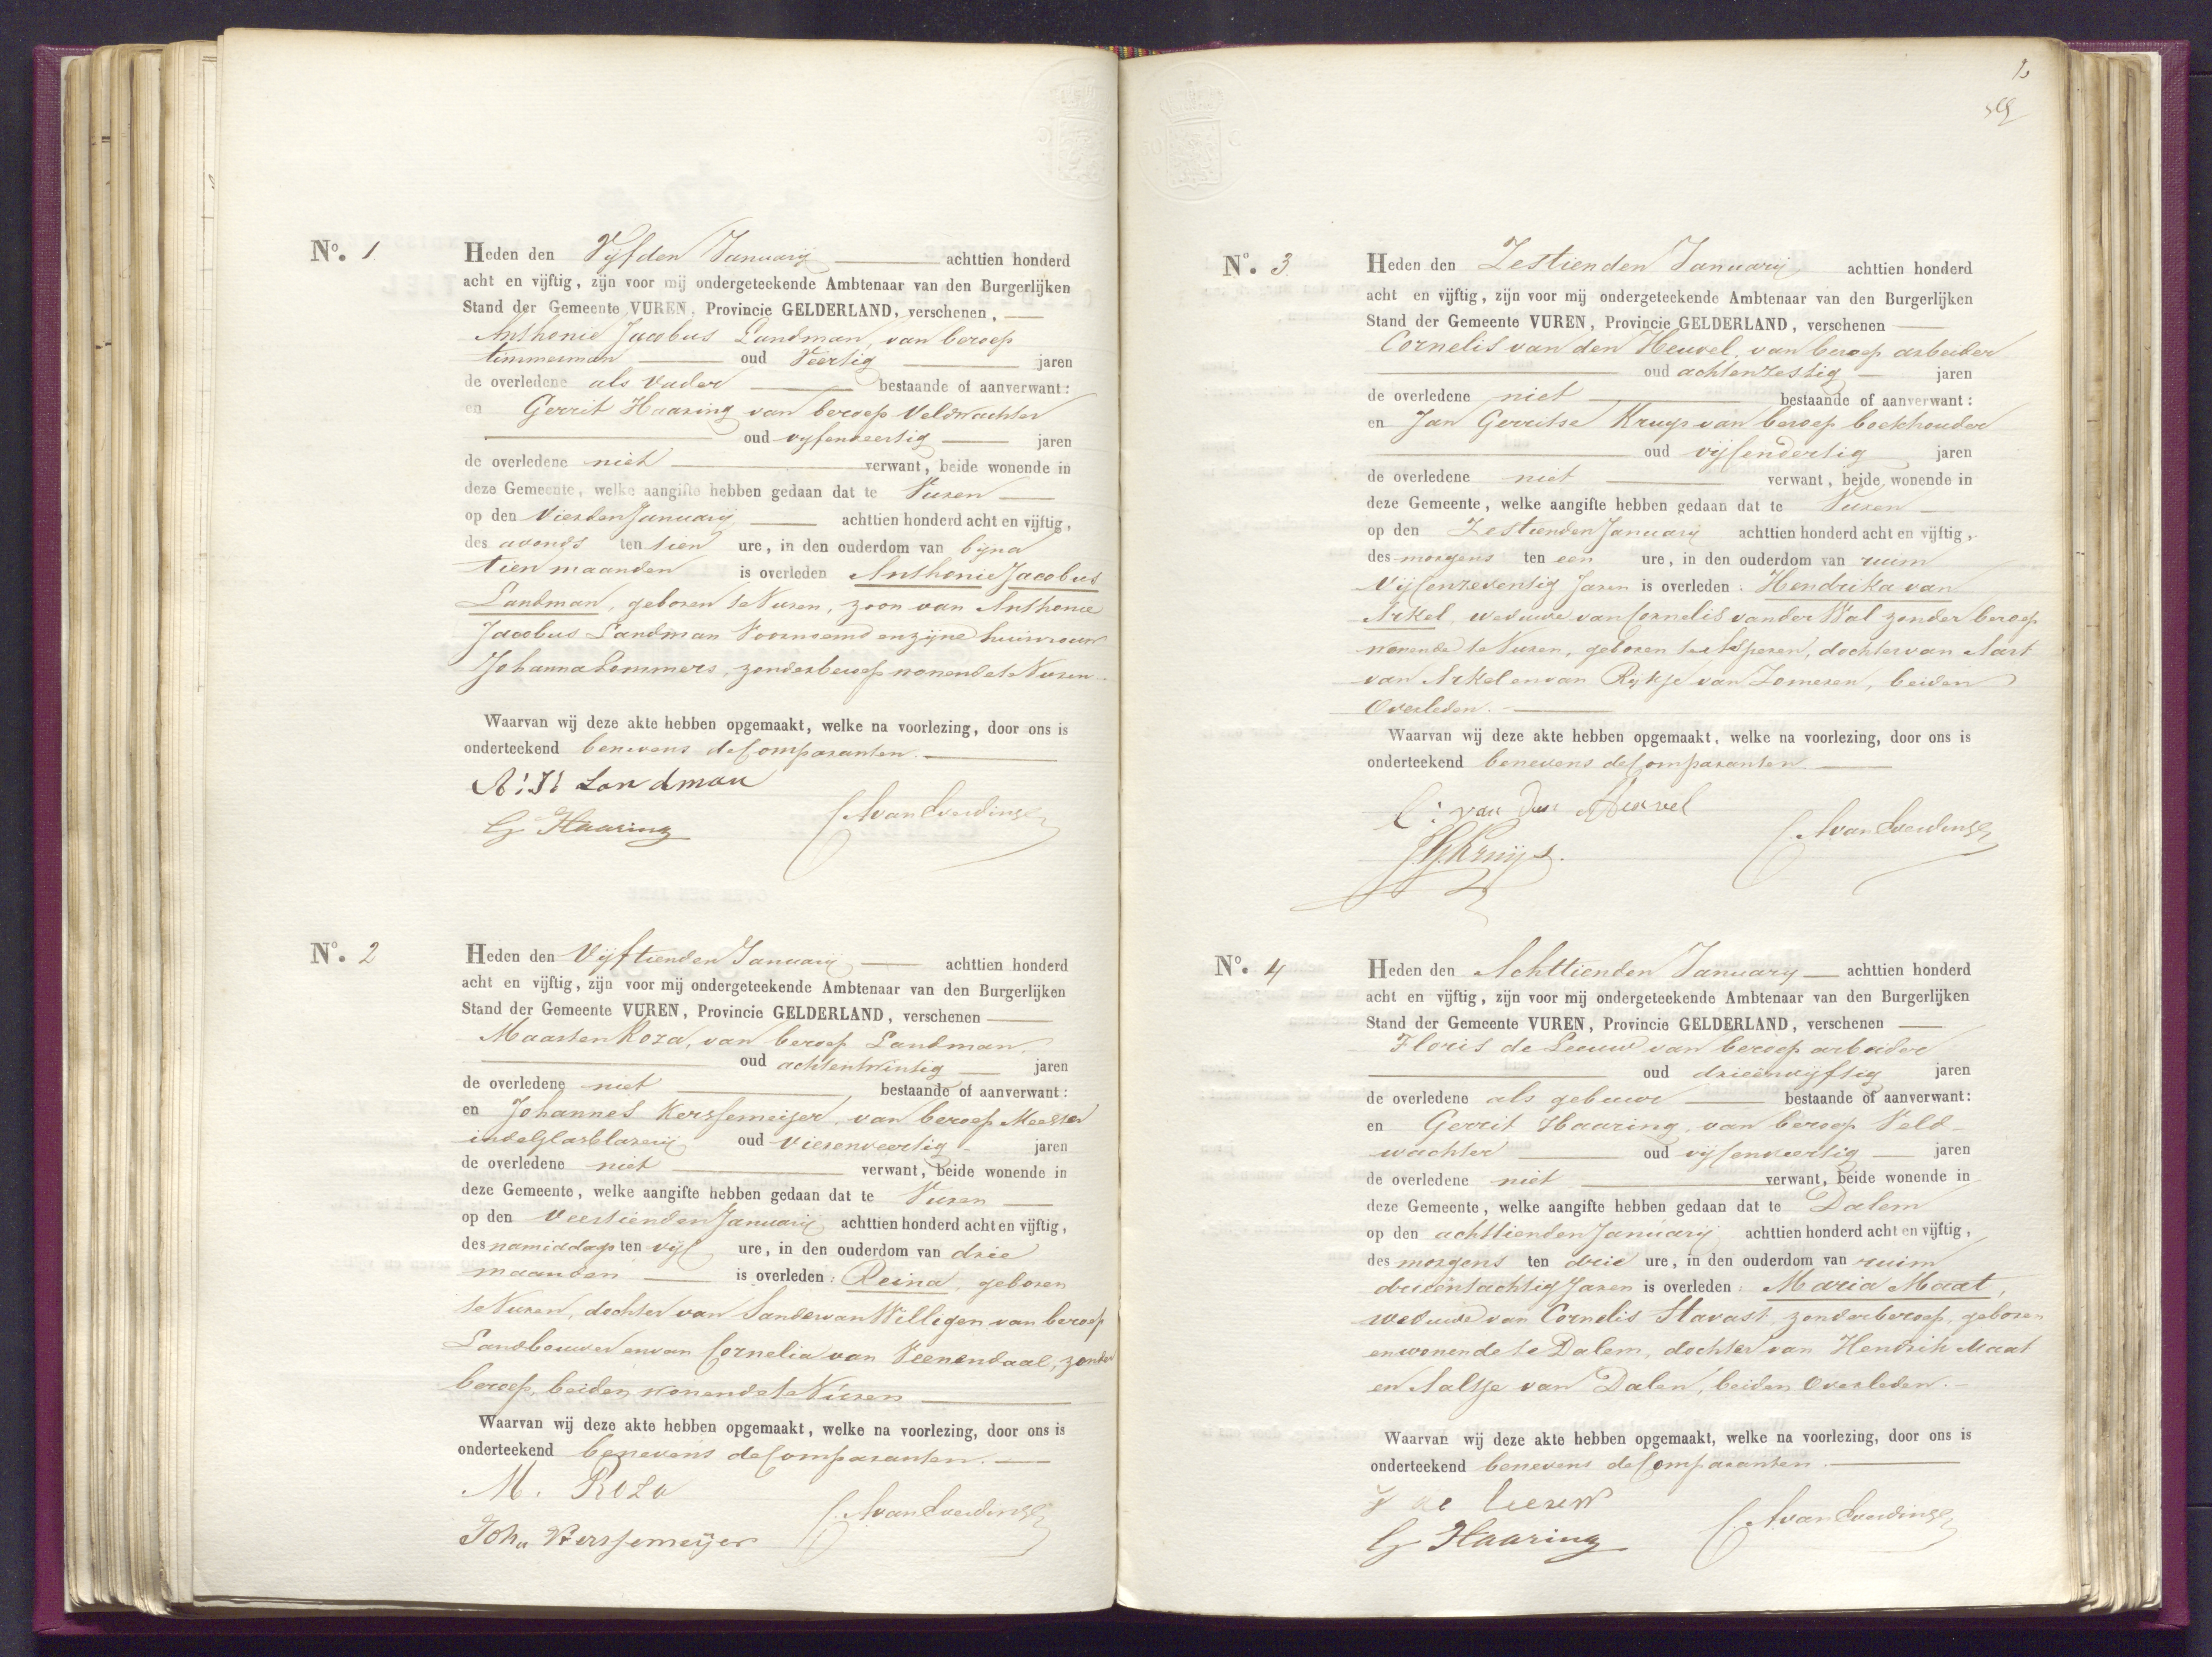 No. 1
Heden den Vijfden Januarij achttien honderd
acht en vijftig, zijn voor mij ondergeteekende Ambtenaar van den Burgerlijken
Stand der Gemeente VUREN, Provincie GELDERLAND, verschenen,
Anthonie Jacobus Landman, van beroep
timmerman oud Veertig jaren
de overledene als Vader bestaande of aanverwant:
en Gerrit Haaring van beroep Veldwachter
oud vijfenveertig jaren
de overledene niet verwant, beide wonende in
deze Gemeente, welke aangifte hebben gedaan dat te Vuren
op den Vierden Januarij achttien honderd acht en vijftig,
des avonds ten tien ure, in den ouderdom van bijna
tien maanden is overleden Anthonie Jacobus
Landman, geboren te Vuren, zoon van Anthonie
Jacobus Landman Voornoemd en zijne huisvrouw
Johanna Sommers, zonder beroep wonende te Vuren
Waarvan wij deze akte hebben opgemaakt, welke na voorlezing, door ons is
onderteekend benevens de Comparanten.
A: J: Landman
G Haaring
No. 2
Heden den Vijftienden Januarij achttien honderd
acht en vijftig, zijn voor mij ondergeteekende Ambtenaar van den Burgerlijken
Stand der Gemeente VUREN, Provincie GELDERLAND, verschenen
Maarten Roza, van beroep Landman,
oud achtentwintig jaren
de overledene niet bestaande of aanverwant:
en Johannes Kerssemeijer, van beroep Meester
in de Glasblazerij oud vierenveertig jaren
de overledene niet verwant, beide wonende in
deze Gemeente, welke aangifte hebben gedaan dat te Vuren
op den Veertienden Januarij achttien honderd acht en vijftig,
des namiddags ten vijf ure, in den ouderdom van drie
maanden is overleden: Reina, geboren
te Vuren, dochter van Sander van Willigen van beroep
Landbouwer en van Cornelia van Veenendaal, zonder
beroep, beiden wonende te Vuren
Waarvan wij deze akte hebben opgemaakt, welke na voorlezing, door ons is
onderteekend benevens de Comparanten.
M. Roza
Joha Kerssemeijer
No. 3
Heden den Zestienden Januarij achttien honderd
acht en vijftig, zijn voor mij ondergeteekende Ambtenaar van den Burgerlijken
Stand der Gemeente VUREN, Provincie GELDERLAND, verschenen
Cornelis van den Heuvel, van beroep arbeider
oud achtenzestig jaren
de overledene niet bestaande of aanverwant:
en Jan Gerritse Kruys van beroep boekhouder
oud vijfendertig jaren
de overledene niet verwant, beide wonende in
deze Gemeente, welke aangifte hebben gedaan dat te Vuren
op den Zestienden Januarij achttien honderd acht en vijftig,
des morgens ten een ure, in den ouderdom van ruim
Vijfenzeventig Jaren is overleden: Hendrika van
Arkel, weduwe van Cornelis van der Wal zonder beroep
wonende te Vuren, geboren te Asperen, dochter van Aart
van Arkel en van Rijkje van Zomeren, beiden
Overleden.
Waarvan wij deze akte hebben opgemaakt, welke na voorlezing, door ons is
onderteekend benevens de Comparanten.
C: van den Heuvel
JGKruijs.
No. 4
Heden den Achttienden Januarij achttien honderd
acht en vijftig, zijn voor mij ondergeteekende Ambtenaar van den Burgerlijken
Stand der Gemeente VUREN, Provincie GELDERLAND, verschenen
Floris de Leeuw van beroep arbeider
oud drieënvijftig jaren
de overledene als gebuur bestaande of aanverwant:
en Gerrit Haaring, van beroep Veld-
wachter oud vijfenveertig jaren
de overledene niet verwant, beide wonende in
deze Gemeente, welke aangifte hebben gedaan dat te Dalem
op den achttienden Januarij achttien honderd acht en vijftig,
des morgens ten drie ure, in den ouderdom van ruim
drieëntachtig Jaren is overleden: Maria Maat,
weduwe van Cornelis Stavast, zonder beroep, geboren
en wonende te Dalem, dochter van Hendrik Maat
en Aaltje van Dalen, beiden Overleden.
Waarvan wij deze akte hebben opgemaakt, welke na voorlezing, door ons is
onderteekend benevens de Comparanten.
de leeuw
G Haaring